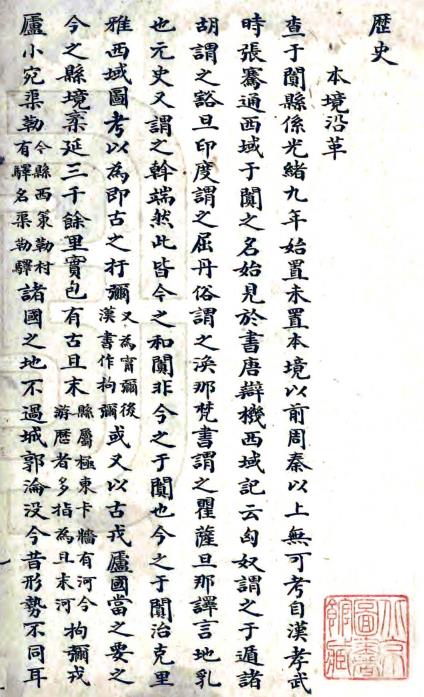 歴史
本境沿革
查于闐縣係光緒九年始置未置本境以前周秦以上無可考自漢孝武
時張騫通西域于闐之名始見於書唐辯機西域記云匈奴謂之于遁諸
胡謂之谿旦印度謂之屈丹俗謂之渙那梵書謂之瞿薩旦那譯言地乳
也元史又謂之斡端然此皆今之和闐非今之于闐也今之于闐治克里
雅西域圖考以為即古之扜彌又為甯彌後漢書作拘彌或又以古戎盧國當之要之
今之縣境袤延三千餘里實包有古且末縣屬極東卡牆有河今游歷者多指為且末河拘彌戎
盧小宛渠勒今縣西策勒村有驛名渠勒驛諸國之地不過城郭淪没今昔形勢不同耳
北京圖書館藏